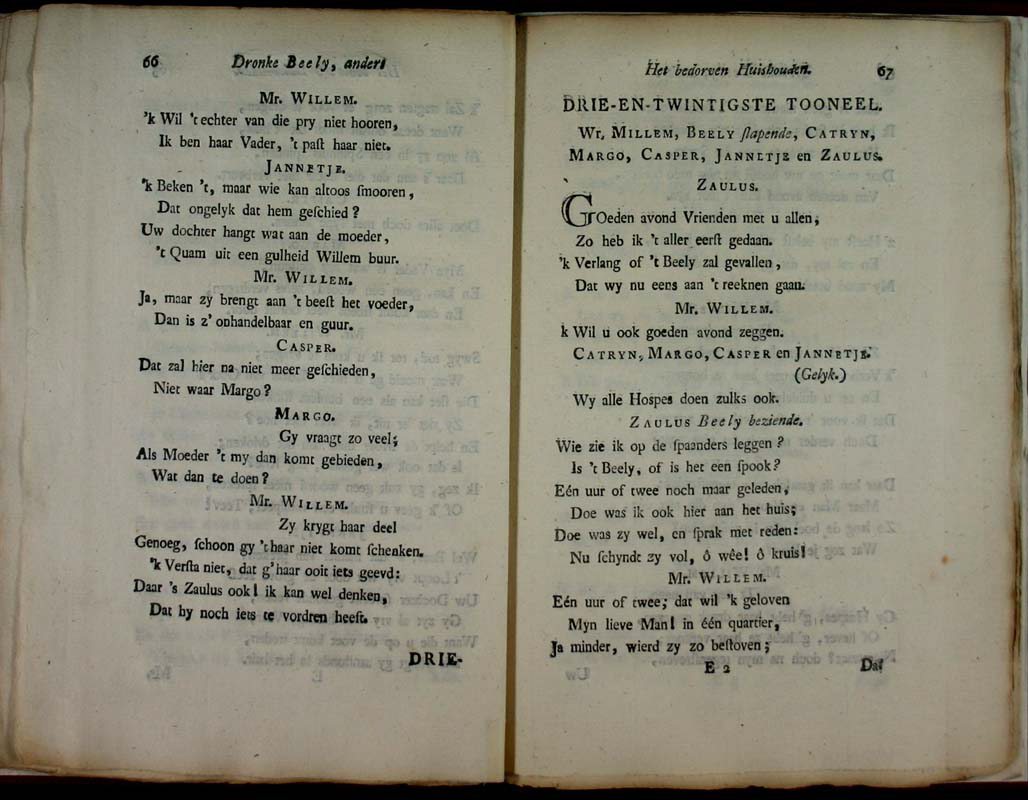 66 Dronke Beely, anders
Mr. WILLEM.
'k Wil 't echter van die pry niet hooren,
Ik ben haar Vader, 't past haar niet.
JANNETJE.
'k Beken 't, maar wie kan altoos smooren,
Dat ongelyk dat hem geschied?
Uw dochter hangt wat aan de moeder,
't Quam uit een gulheid Willem buur.
Mr. WILLEM.
Ja, maar zy brengt aan 't beest het voeder,
Dan is z' onhandelbaar en guur.
CASPER.
Dat zal hier na niet meer geschieden,
Niet waar Margo?
MARGO.
Gy vraagt zo veel;
Als Moeder 't my dan komt gebieden,
Wat dan te doen?
Mr. WILLEM.
Zy krygt haar deel
Genoeg, schoon gy 't haar niet komt schenken.
'k Versta niet, dat g' haar ooit iets geevd:
Daar 's Zaulus ook! ik kan wel denken,
Dat hy noch iets te vordren heeft.
DRIE-
Het bedorven Huishouden. 67
DRIE-EN-TWINTIGSTE TOONEEL.
Wr, MILLEM, BEELY slapende, CATRYN,
MARGO, CASPER, JANNETJE en ZAULUS.
ZAULUS.
GOeden avond Vrienden met u allen,
Zo heb ik 't aller eerst gedaan.
'k Verlang of 't Beely zal gevallen,
Dat wy nu eens aan 't reeknen gaan.
Mr. WILLEM.
k Wil u ook goeden avond zeggen.
CATRYN, MARGO, CASPER en JANNETJE.
(Gelyk.)
Wy alle Hospes doen zulks ook.
ZAULUS Beely beziende.
Wie zie ik op de spaanders leggen?
Is 't Beely, of is het een spook?
Eén uur of twee noch maar geleden,
Doe was ik ook hier aan het huis;
Doe was zy wel, en sprak met reden:
Nu schyndt zy vol, ô wêe! ô kruis!
Mr. WILLEM.
Eén uur of twee; dat wil 'k geloven
Myn lieve Man! in één quartier,
Ja minder, wierd zy zo bestoven;
E 2 Dat